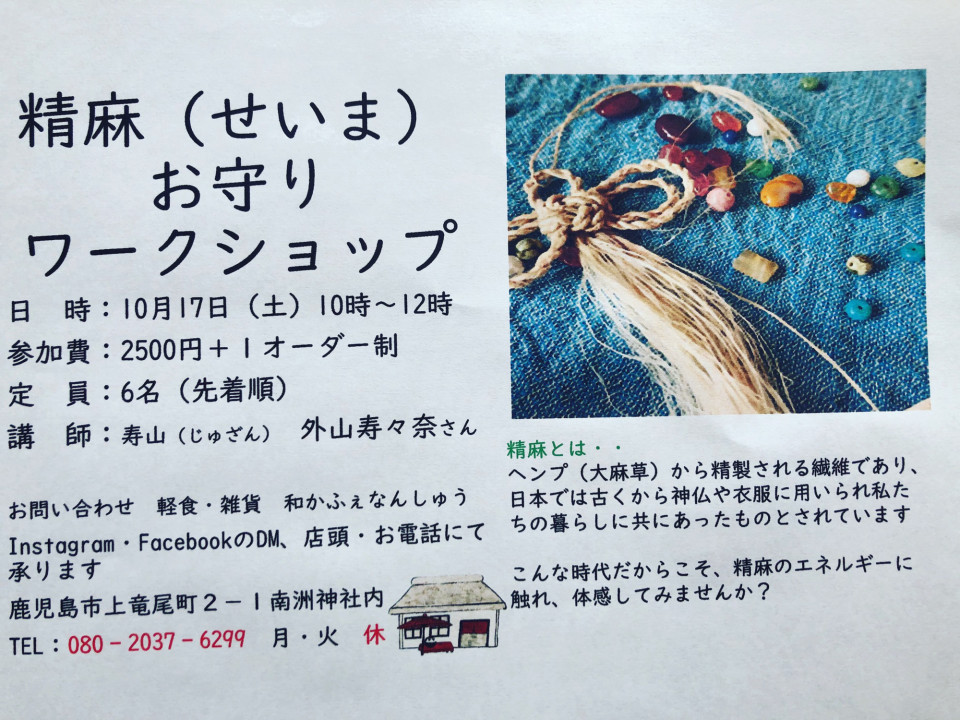 精麻（せいま）
お守り
ワークショップ
日　時：10月17日（土）10時～12時
参加費：2500円＋１オーダー制
定　員：6名（先着順）
講　師：寿山（じゅざん）　外山寿々奈さん
お問い合わせ　軽食・雑貨　和かふぇなんしゅう
Instagram・FacebookのDM、店頭・お電話にて
承ります
鹿児島市上竜尾町２－１南洲神社内
TEL：080－2037－6299　月・火　休
精麻とは・・
ヘンプ（大麻草）から精製される繊維であり、
日本では古くから神仏や衣服に用いられ私た
ちの暮らしに共にあったものとされています
こんな時代だからこそ、精麻のエネルギーに
触れ、体感してみませんか？